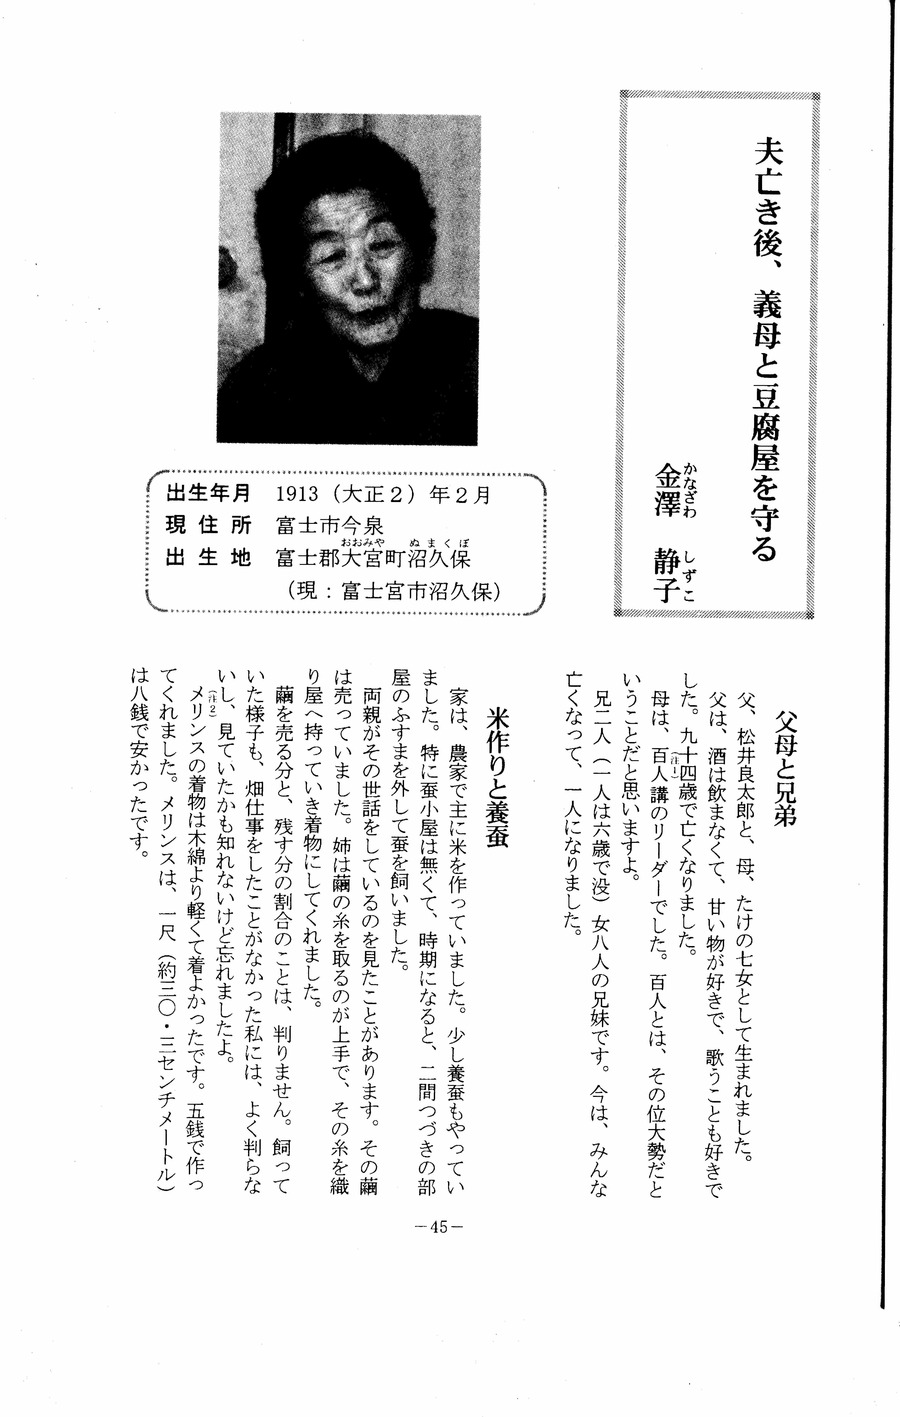 夫亡き後、義母と豆腐屋を守る
金澤　静子
かなざわ　しずこ
出生年月　1913（大正２）年２月
現住所　富士市今泉
出生地　富士郡大宮町沼久保
おおみや　ぬまくぼ
（現：富士宮市沼久保）
父母と兄弟
父、松井良太郎と、母、たけの七女として生まれました。
父は、酒は飲まなくて、甘い物が好きで、歌うことも好きで
した。九十四歳で亡くなりました。
（注1）
母は、百人講のリーダーでした。百人とは、その位大勢だと
いうことだと思いますよ。
兄二人（一人は六歳で没）女八人の兄妹です。今は、みんな
亡くなって、一人になりました。
米作りと養蚕
家は、農家で主に米を作っていました。少し養蚕もやってい
ました。特に蚕小屋は無くて、時期になると、二間つづきの部
屋のふすまを外して蚕を飼いました。
両親がその世話をしているのを見たことがあります。その繭
は売っていました。姉は繭の糸を取るのが上手で、その糸を織
り屋へ持っていき着物にしてくれました。
繭を売る分と、残す分の割合のことは、判りません。飼って
いた様子も、畑仕事をしたことがなかった私には、よく判らな
いし、見ていたかも知れないけど忘れましたよ。
（注2）
メリンスの着物は木綿より軽くて着よかったです。五銭で作っ
てくれました。メリンスは、一尺（約三〇・三センチメートル）
は八銭で安かったです。
－45－